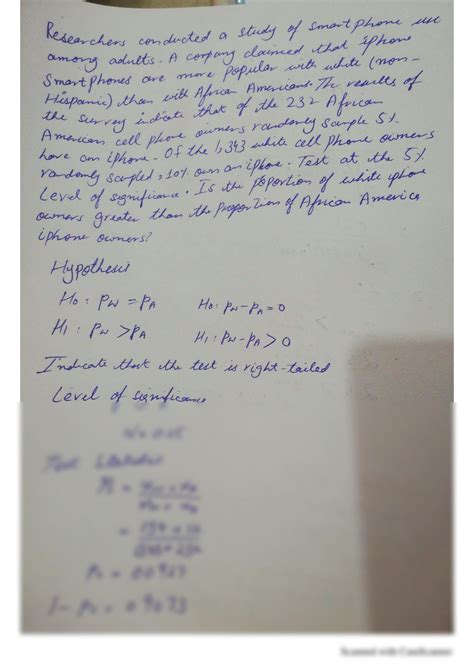 Researchers conducted a study of smartphone use
among adults. A company claimed that iphone
smartphones are more popular with white (non-
Hispanic) than with African Americans. The results of
the survey indicate that of the 232 African
American cell phone owners randomly sample 5%
have an iphone. Of the 1,343 white cell phone owners
randomly sampled, 10% own an iphone. Test at the 5%
Level of significance. Is the proportion of white iphone
owners greater than the proportion of African America
iphone owners?
Hypothesis
H0 : PW = PA H0: PW-PA=0
H1 : PW >PA H1: PW-PA> 0
Indicate that the test is right-tailed
Level of significance
Test Statistic
1 - P0 = 0.9073
Scanned with CamScanner